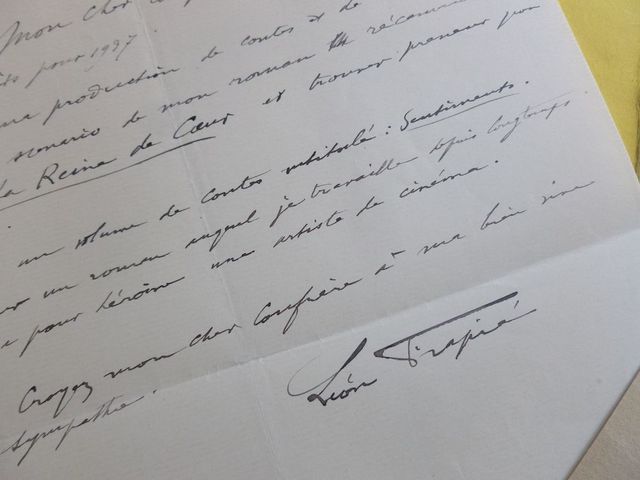 Mon cher
pour 1937.
production de contes et de
scenario de mon roman récemm
la Reine de Cœur et trouver preneur pour
un volume de contes intitulé : Sentiments.
un roman auquel je travaille depuis longtemps.
pour héroïne une artiste de cinéma.
Croyez mon cher Confrère à ma bien sinc
sympathie.
Léon Frapié